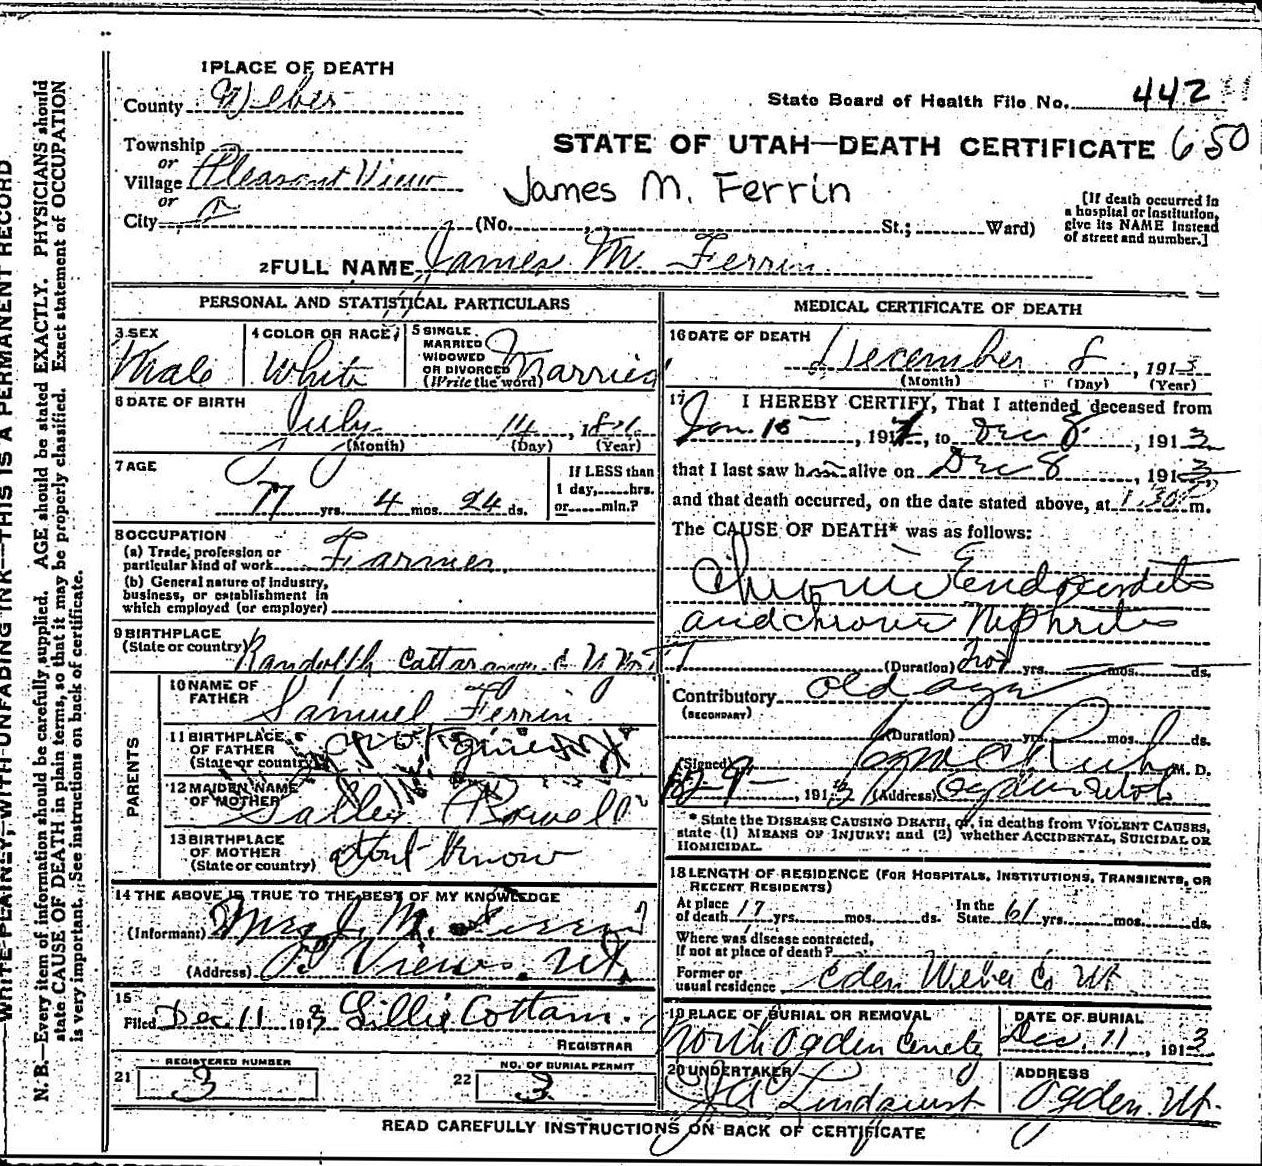 1 PLACE OF DEATH
County Weber
State Board of Health File No. 442
Township
STATE OF UTAH—DEATH CERTIFICATE 650
or
Village Pleasant View
James M. Ferrin
or
City (No. , St.; Ward)
[If death occurred in
a hospital or institution,
give its NAME instead
of street and number.]
2 FULL NAME James M. Ferrin
PERSONAL AND STATISTICAL PARTICULARS
3 SEX
Male
4 COLOR OR RACE
White
5 SINGLE
MARRIED
WIDOWED
OR DIVORCED
(Write the word)
Married
6 DATE OF BIRTH
July 14, 18
(Month) (Day) (Year)
7 AGE
77 yrs. 4 mos. 24 ds.
If LESS than
1 day, hrs.
or min.?
8 OCCUPATION
(a) Trade, profession or
particular kind of work Farmer
(b) General nature of industry,
business, or establishment in
which employed (or employer)
9 BIRTHPLACE
(State or country) Randolph Cattaraugus
PARENTS
10 NAME OF
FATHER
Samuel Ferrin
11 BIRTHPLACE
OF FATHER
(State or country)
12 MAIDEN NAME
OF MOTHER
Sally Powell
13 BIRTHPLACE
OF MOTHER
(State or country) dont know
14 THE ABOVE IS TRUE TO THE BEST OF MY KNOWLEDGE
(Informant) Mrs J. M. Ferrin
(Address) P View. Ut.
15
Filed Dec 11 1913 Lillie Cottam.
REGISTRAR
21 REGISTERED NUMBER
3
22 NO. OF BURIAL PERMIT
3
MEDICAL CERTIFICATE OF DEATH
16 DATE OF DEATH
December 8, 1913
(Month) (Day) (Year)
17 I HEREBY CERTIFY, That I attended deceased from
Jan. 15, 191 , to Dec 8, 1913
that I last saw him alive on Dec 8, 1913
and that death occurred, on the date stated above, at 1.30 P m.
The CAUSE OF DEATH* was as follows:
Chronic Endocarditis
and chronic Nephritis
(Duration) yrs. mos. ds.
Contributory old age
(SECONDARY)
(Duration) yrs. mos. ds.
(Signed) M. D.
12-9-, 1913 (Address) Ogden Utah
* State the DISEASE CAUSING DEATH, or, in deaths from VIOLENT CAUSES,
state (1) MEANS OF INJURY; and (2) whether ACCIDENTAL, SUICIDAL OR
HOMICIDAL.
18 LENGTH OF RESIDENCE (FOR HOSPITALS, INSTITUTIONS, TRANSIENTS, OR
RECENT RESIDENTS)
At place
of death 17 yrs. mos. ds.
In the
State 61 yrs. mos. ds.
Where was disease contracted,
if not at place of death?
Former or
usual residence Eden Weber Co Ut
19 PLACE OF BURIAL OR REMOVAL
North Ogden Cemety
DATE OF BURIAL
Dec. 11, 1913
20 UNDERTAKER
Lindquist
ADDRESS
Ogden Ut.
READ CAREFULLY INSTRUCTIONS ON BACK OF CERTIFICATE
WRITE PLAINLY, WITH UNFADING INK—THIS IS A PERMANENT RECORD
N. B.—Every item of information should be carefully supplied. AGE should be stated EXACTLY. PHYSICIANS should
state CAUSE OF DEATH in plain terms, so that it may be properly classified. Exact statement of OCCUPATION
is very important. See instructions on back of certificate.